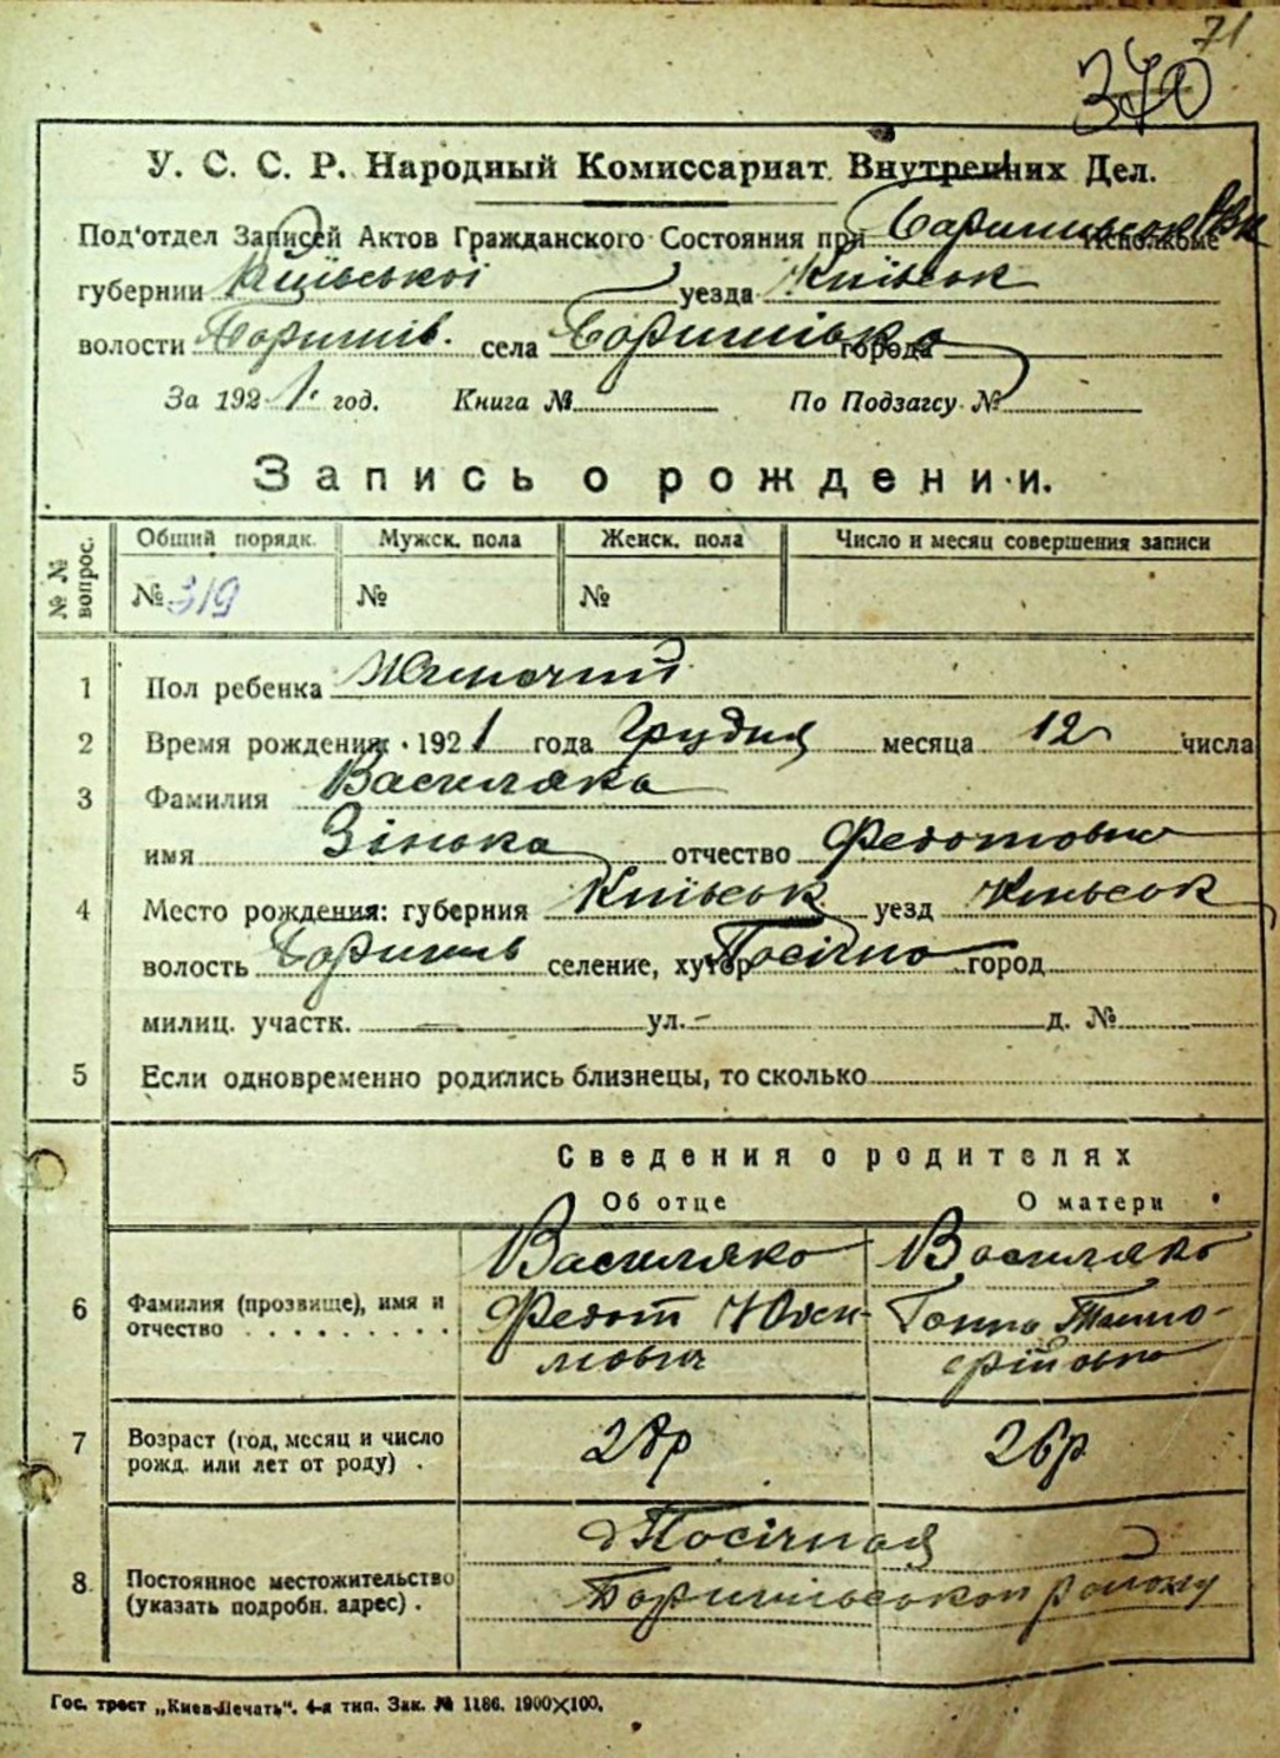 71
370
У. С. С. Р. Народный Комиссариат Внутренних Дел.
Под'отдел Записей Актов Гражданского Состояния при Исполкоме
губернии Київської уезда Київськ
волости Боришпів. села Боришпівка города
За 1921. год. Книга № По Подзагсу №
Запись о рождении.
№ № вопрос. Общий порядк. Мужск. пола Женск. пола Число и месяц совершения записи
№ 319 № №
1 Пол ребенка Жиночий
2 Время рождения 1921 года Грудня месяца 12 числа
3 Фамилия Василяка
имя Зінька отчество Федотовна
4 Место рождения: губерния Київськ уезд Київськ
волость селение, хутор Посічна город
милиц. участк. — ул. – д. №
5 Если одновременно родились близнецы, то сколько
Сведения о родителях
Об отце О матери
6 Фамилия (прозвище), имя и отчество . . . . . . . . . .
Василяко Василяко
Федот Ганна Тимо-
фіївна
7 Возраст (год, месяц и число рожд. или лет от роду) . 28р 26р
8 Постоянное местожительство (указать подробн. адрес) .
д Посічная
району
Гос. трест „Киев-Печать“. 4-я тип. Зак. № 1186. 1900×100.